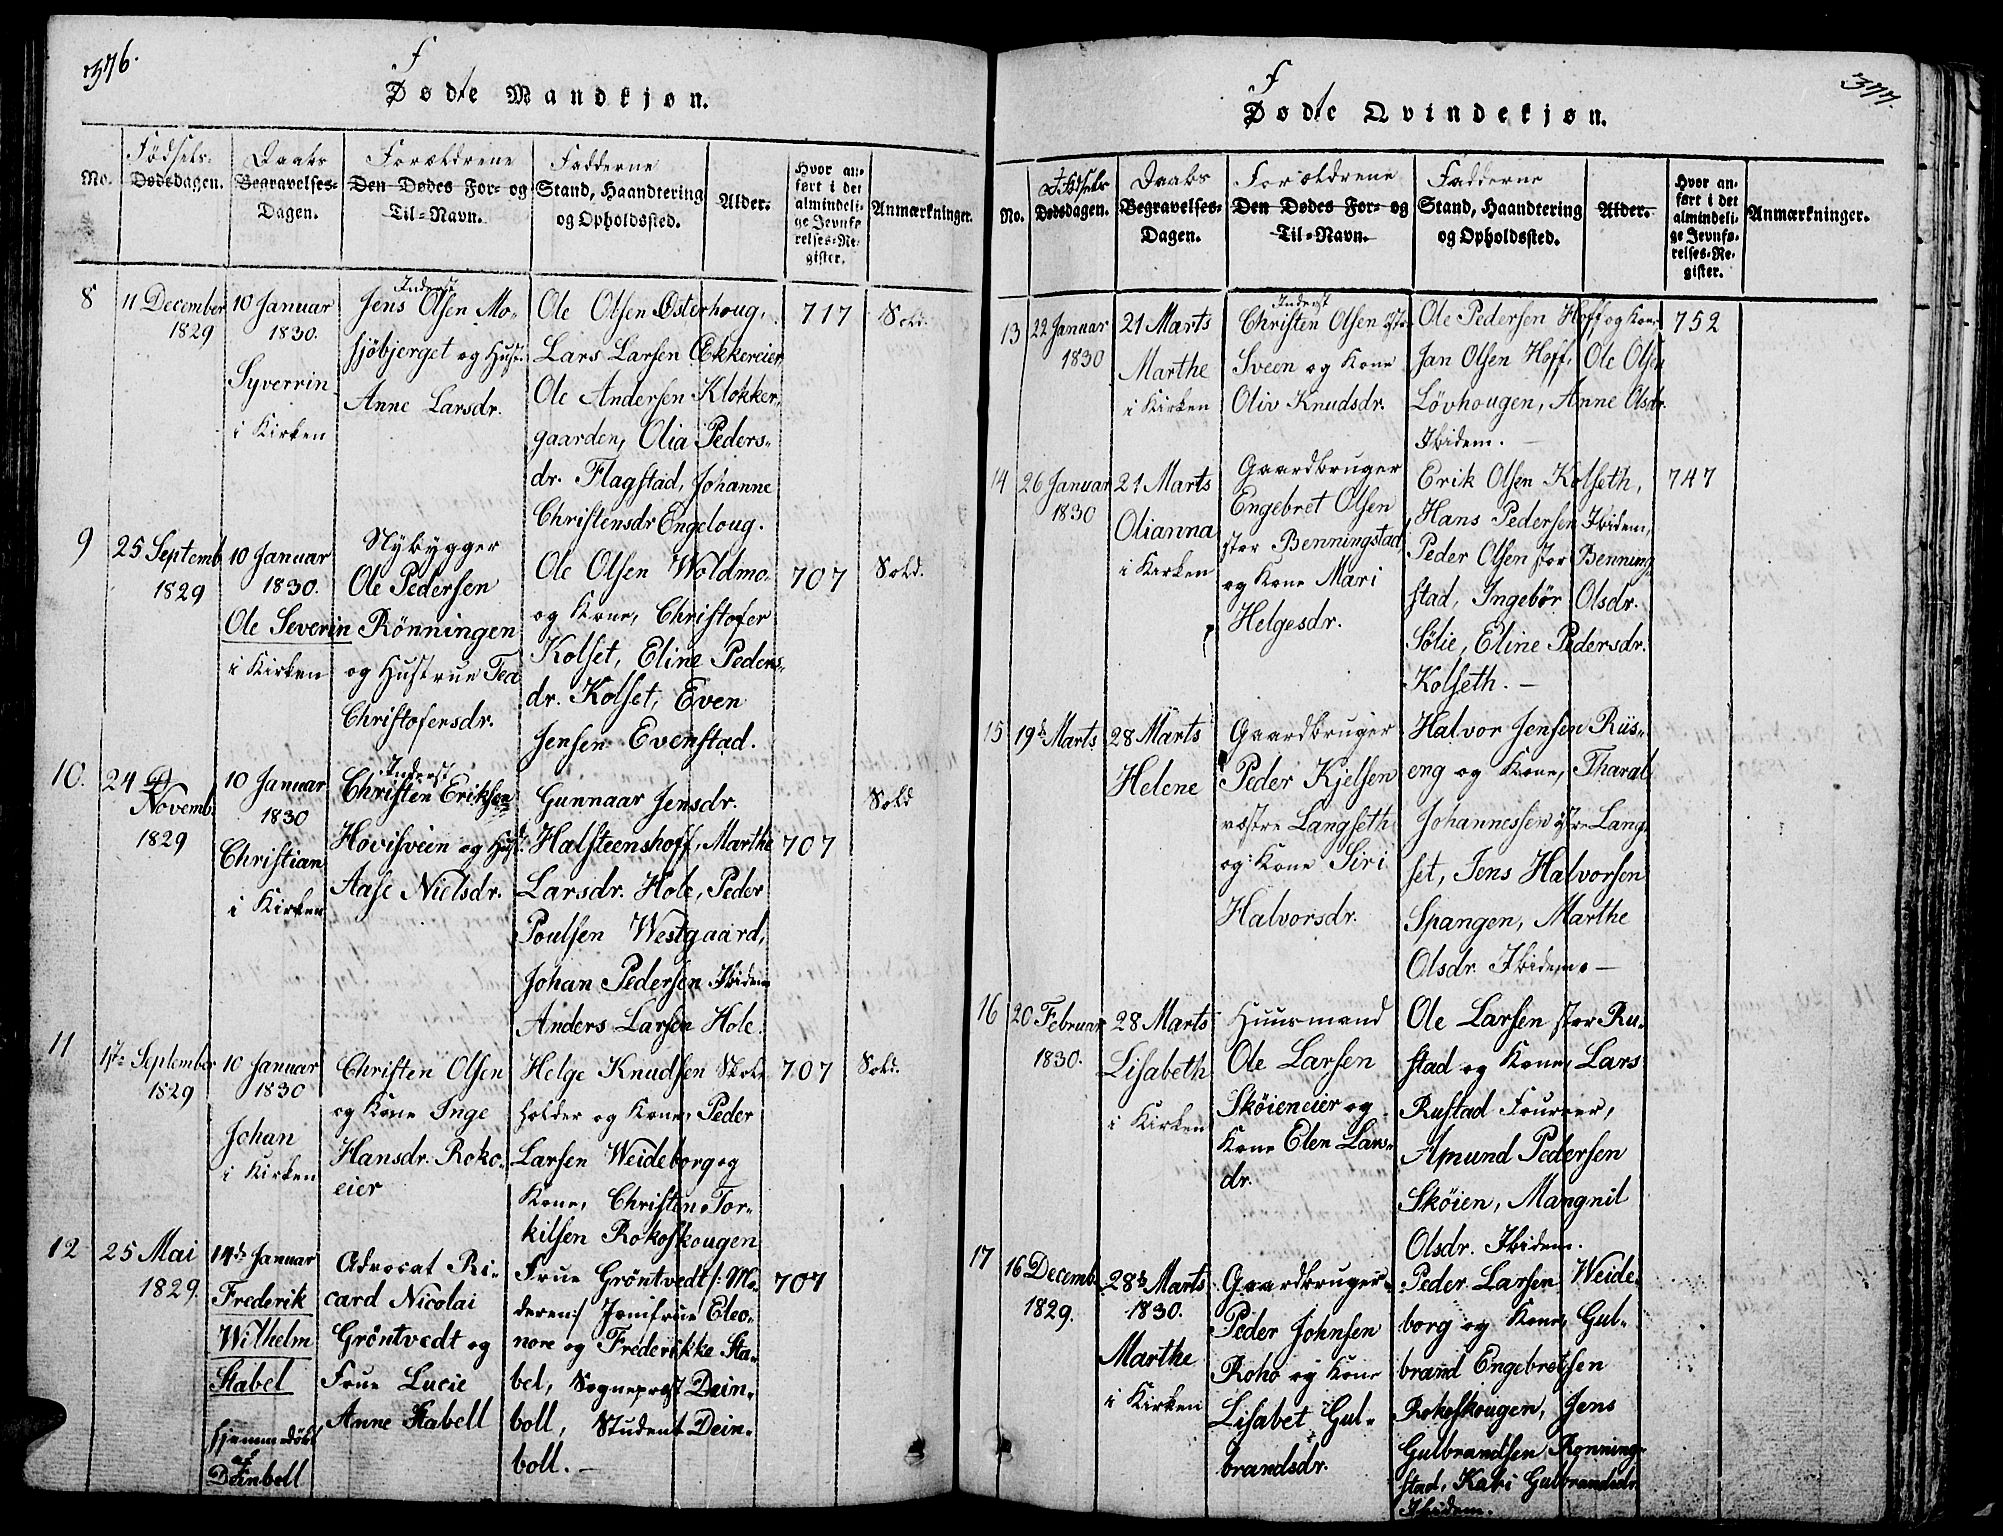 376.
Fødte Mandkjøn.
No.
Fødsels-
Dødsdagen.
Daabs
Begravelses-
Dagen.
Forældrene
Den Dødes For- og
Til-Navn.
Fadderne
Stand, Haandtering
og Opholdssted.
Alder.
Hvor an-
ført i det
almindeli-
ge Jevnfø-
relses-Re-
gister.
Anmærkninger.
8
11 December
1829
10 Januar
1830.
Syverrin
i Kirken
Inderst
Jens Olsen Mo-
sjöbjerget og Hust.
Anne Larsdr.
Ole Olsen Österhoug,
Lars Larsen Ekkereier,
Ole Andersen Klokker-
gaarden, Olia Peders-
dr. Flagstad, Johanne
Christensdr Engeloug.
717
Sold.
9
25 Septemb
1829
10 Januar
1830.
Ole Severin
i Kirken
Nybygger
Ole Pedersen
Rönningen
og Hustrue Tea
Christofersdr.
Ole Olsen Woldmo-
og Kone, Christofer
Kolset, Eline Peders-
dr. Kolset, Even
Jensen Evenstad.
707
Sold.
10.
24
Novemb.
1829
10 Januar
1830
Christian
i Kirken
Inderst
Christen Eriksen
Hovisveen og Hust.
Aase Nielsdr.
Gunnaar Jensdr.
Halsteenshoff, Marthe
Larsdr. Hole, Peder
Poulsen Westgaard,
Johan Pedersen Ibidem
Anders Larsen Hole.
707
Sold
11
1ste September
1829
10 Januar
1830
Johan
i Kirken
Christen Olsen
og Kone Inge
Hansdr. Roko-
eier
Helge Knudsen Skole
holder og Kone, Peder
Larsen Weideborg og
Kone, Christen Tor-
kilsen Rokoskougen
707
Sold.
12
25 Mai
1829.
14de Januar
Frederik
Wilhelm
Stabel
hjemmedöbt
af
Deinboll
Advocat Ri-
card Nicolai
Gröntvedt og
Frue Lucie
Anne Stabell
Frue Gröntvedt /: Mo-
deren :/ Jomfrue Eleo-
nore og Frederikke Sta-
bel, Sognepræst Dein-
boll, Student Dein-
boll. —
707
377.
Fødte Qvindekjøn.
No.
Fødsels
Dødsdagen.
Daabs
Begravelses-
Dagen.
Forældrene
Den Dødes For- og
Til-Navn.
Fadderne
Stand, Haandtering
og Opholdssted.
Alder.
Hvor an-
ført i det
almindeli-
ge Jevnfø-
relses-Re-
gister.
Anmærkninger.
13
22 Januar
1830
21 Marts
Marthe
i Kirken
Inderst
Christen Olsen
Sveen og Kone
Oliv Knudsdr.
Ole Pedersen Hoff og Kone
Jan Olsen Hoff, Ole Olsen
Lövhougen, Anne Olsdr.
Ibidem. —
752
14
26 Januar
1830
21 Marts
Olianna
i Kirken
Gaardbruger
Engebret Olsen
stor Benningstad
og Kone Mari
Helgesdr.
Erik Olsen Kolseth,
Hans Pedersen Ibidem,
Peder Olsen stor Benning-
stad, Ingebör Olsdr.
Sölie, Eline Pedersdr.
Kolseth. —
747
15
19de Marts
28 Marts
Helene
Gaardbruger
Peder Kjelsen
vestre Langseth
og Kone Siri
Halvorsdr.
Halvor Jensen Riis-
eng og Kone, Tharal
Johannessen östre Lang-
set, Jens Halvorsen
Spangen, Marthe
Olsdr. Ibidem. —
16
20 Februar
1830.
28 Marts
Lisabeth
i Kirken
Huusmand
Ole Larsen
Sköieneier og
Kone Elen Lars-
dr.
Ole Larsen stor Ru-
stad og Kone, Lars
Rustad Fourer,
Amund Pedersen
Sköien, Mangnil
Olsdr. Ibidem.
17
16 Decemb.
1829.
28de Marts
1830.
Marthe
i Kirken
Gaardbruger
Peder Johnsen
Roho og Kone
Lisabet Gul-
brandsdr.
Peder Larsen Weide-
borg og Kone, Gul-
brand Engebretsen
Rokoskougen, Jens
Gulbrandsen Ronning-
stad, Kari Gulbrandsdr.
Ibidem.